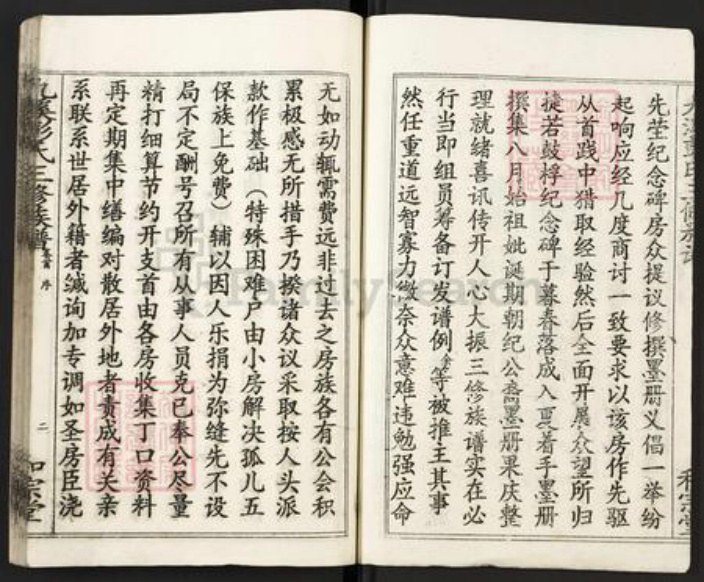 先茔纪念碑房众提议修撰墨册义倡一举纷
起响应经几度商讨一致要求以该房作先驱
从首践中猎取经验然后全面开展众望所归
捷若鼓桴纪念碑于暮春落成入夏着手墨册
撰集八月始祖妣诞期朝纪公裔墨册果庆整
理就绪喜讯传开人心大振三修族谱实在必
行当即组员筹备订发谱例余等被推主其事
然任重道远智寡力微奈众意难违勉强应命
无如动辄需费远非过去之房族各有公会积
累极感无所措手乃揆诸众议采取按人头派
款作基础（特殊困难户由小房解决孤儿五
保族上免费）辅以因人乐捐为弥缝先不设
局不定酬号召所有从事人员克己奉公尽量
精打细算节约开支首由各房收集丁口资料
再定期集中缮编对散居外地者责成有关亲
系联系世居外籍者缄询加专调如圣房臣浇
彭氏三修族谱
卷首 序
二
和宗堂
FamilySearch